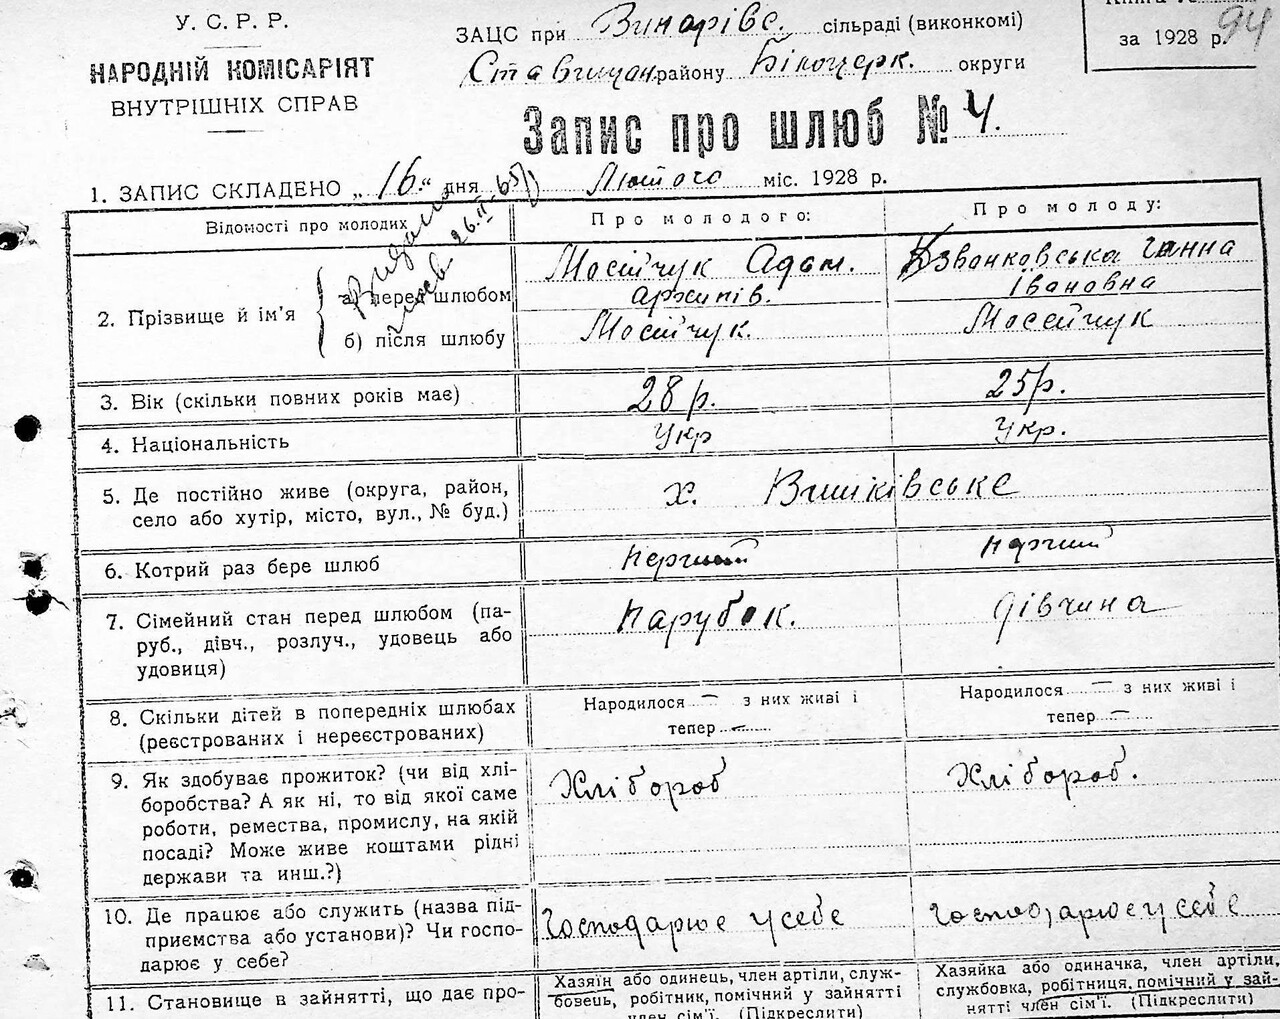 У. С. Р. Р.
НАРОДНІЙ КОМІСАРІЯТ
ВНУТРІШНІХ СПРАВ
ЗАЦС при Винарівс. сільраді (виконкомі)
Ставищан. району Білоцерк. округи
за 1928 р. 94
Запис про шлюб № 4.
1. ЗАПИС СКЛАДЕНО „16“ дня Лютого міс. 1928 р.
26.II-65
Відомості про молодих
Про молодого:
Про молоду:
2. Прізвище й ім'я
а) перед шлюбом
б) після шлюбу
Мосійчук Адам.
Архипів.
Мосійчук.
Дзвонковська Ганна
Івановна
Мосейчук
3. Вік (скільки повних років має)
28 р.
25 р.
4. Національність
Укр
Укр.
5. Де постійно живе (округа, район,
село або хутір, місто, вул., № буд.)
х.
6. Котрий раз бере шлюб
перший
перший
7. Сімейний стан перед шлюбом (па-
руб., дівч., розлуч., удовець або
удовиця)
Парубок.
дівчина
8. Скільки дітей в попередніх шлюбах
(реєстрованих і нереєстрованих)
Народилося — з них живі і
тепер —
Народилося — з них живі і
тепер —
9. Як здобуває прожиток? (чи від хлі-
боробства? А як ні, то від якої саме
роботи, ремества, промислу, на якій
посаді? Може живе коштами рідні
держави та инш.?)
Хлібороб
Хлібороб.
10. Де працює або служить (назва під-
приємства або установи)? Чи госпо-
дарює у себе?
Господарює у себе
Господарює у себе
11. Становище в зайнятті, що дає про-
Хазяїн або одинець, член артіли, служ-
бовець, робітник, помічний у зайнятті
член сім'ї. (Підкреслити)
Хазяйка або одиначка, член артіли,
службовка, робітниця, помічний у зай-
нятті член сім'ї. (Підкреслити)